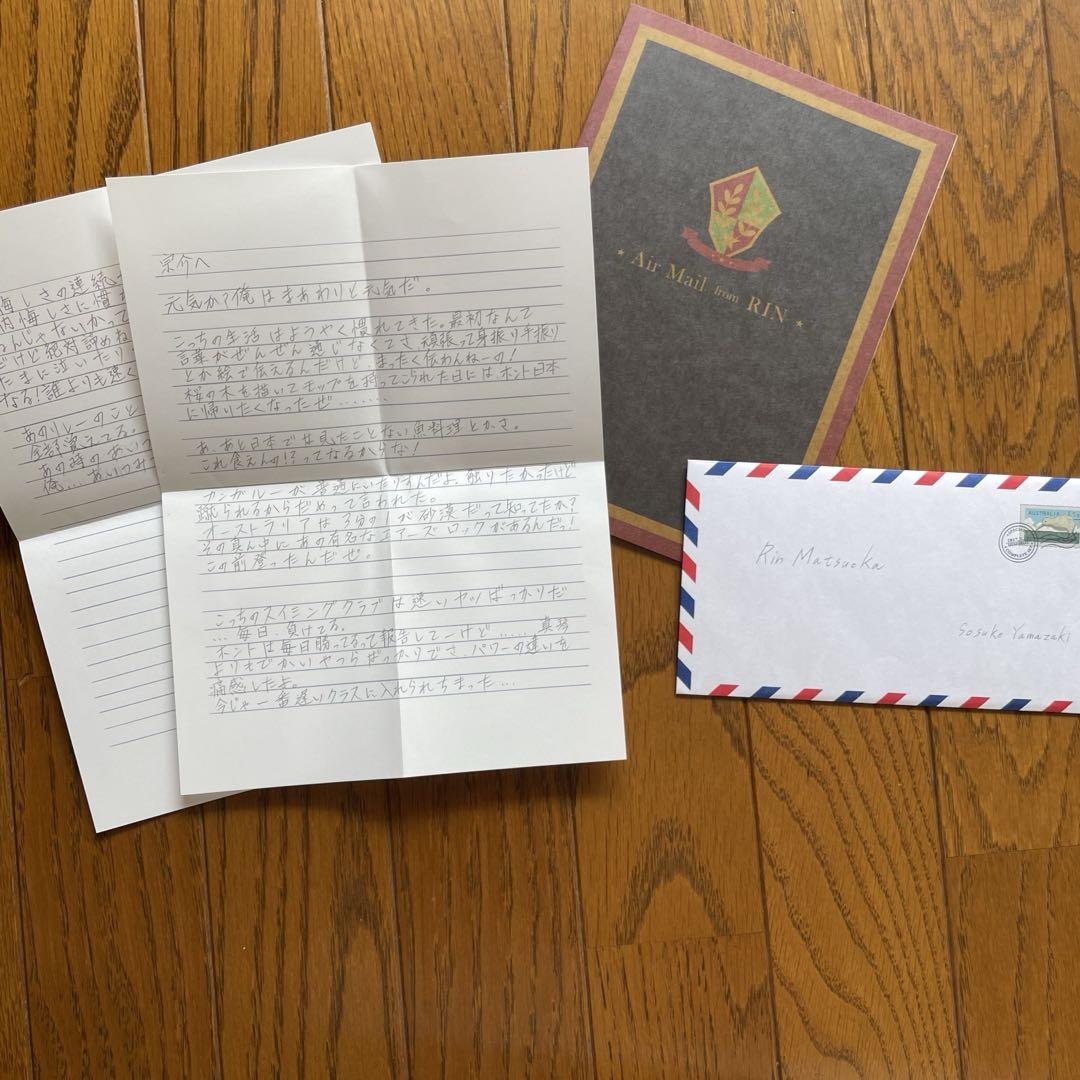 宗介へ
元気か？俺はまあわりと元気だ。
こっちの生活はようやく慣れてきた。最初なんて
言葉がぜんぜん通じなくてさ、頑張って身振り手振り
とか絵で伝えるんだけど、まったく伝わんねーの！
桜の木を描いてモップを持ってこられた日には、ホント日本
に帰りたくなったぜ………
あ、あと日本で
見たことない魚料理とかさ。
これ食えんの!?ってなるからな！
カンガルーが普通にいたりすんだよ、触りたかったけど
蹴られるからだめって言われた。
オーストラリアは3分の1が砂漠だって知ってたか？
その真ん中にあの有名なエアーズロックがあるんだっ！
この前登ったんだぜ。
こっちのスイミングクラブは速いヤツばっかりだ
…毎日、負けてる。
ホントは毎日勝ってるって報告してーけど……真琴
よりもでかいやつらばっかりでさ、パワーの違いを
痛感したよ。
今じゃ一番遅いクラスに入れられちまった…
悔しさの連続
悔しさに慣
じゃないかって
だけど絶対諦めね
たまに泣いたり
なる！誰よりも速く
あのリレーのこと
全部覚えてる。
あの時のあいつ
俺…、あいつみ
Air Mail from RIN
AUSTRALIA
Rin Matsuoka
Sosuke Yamazaki